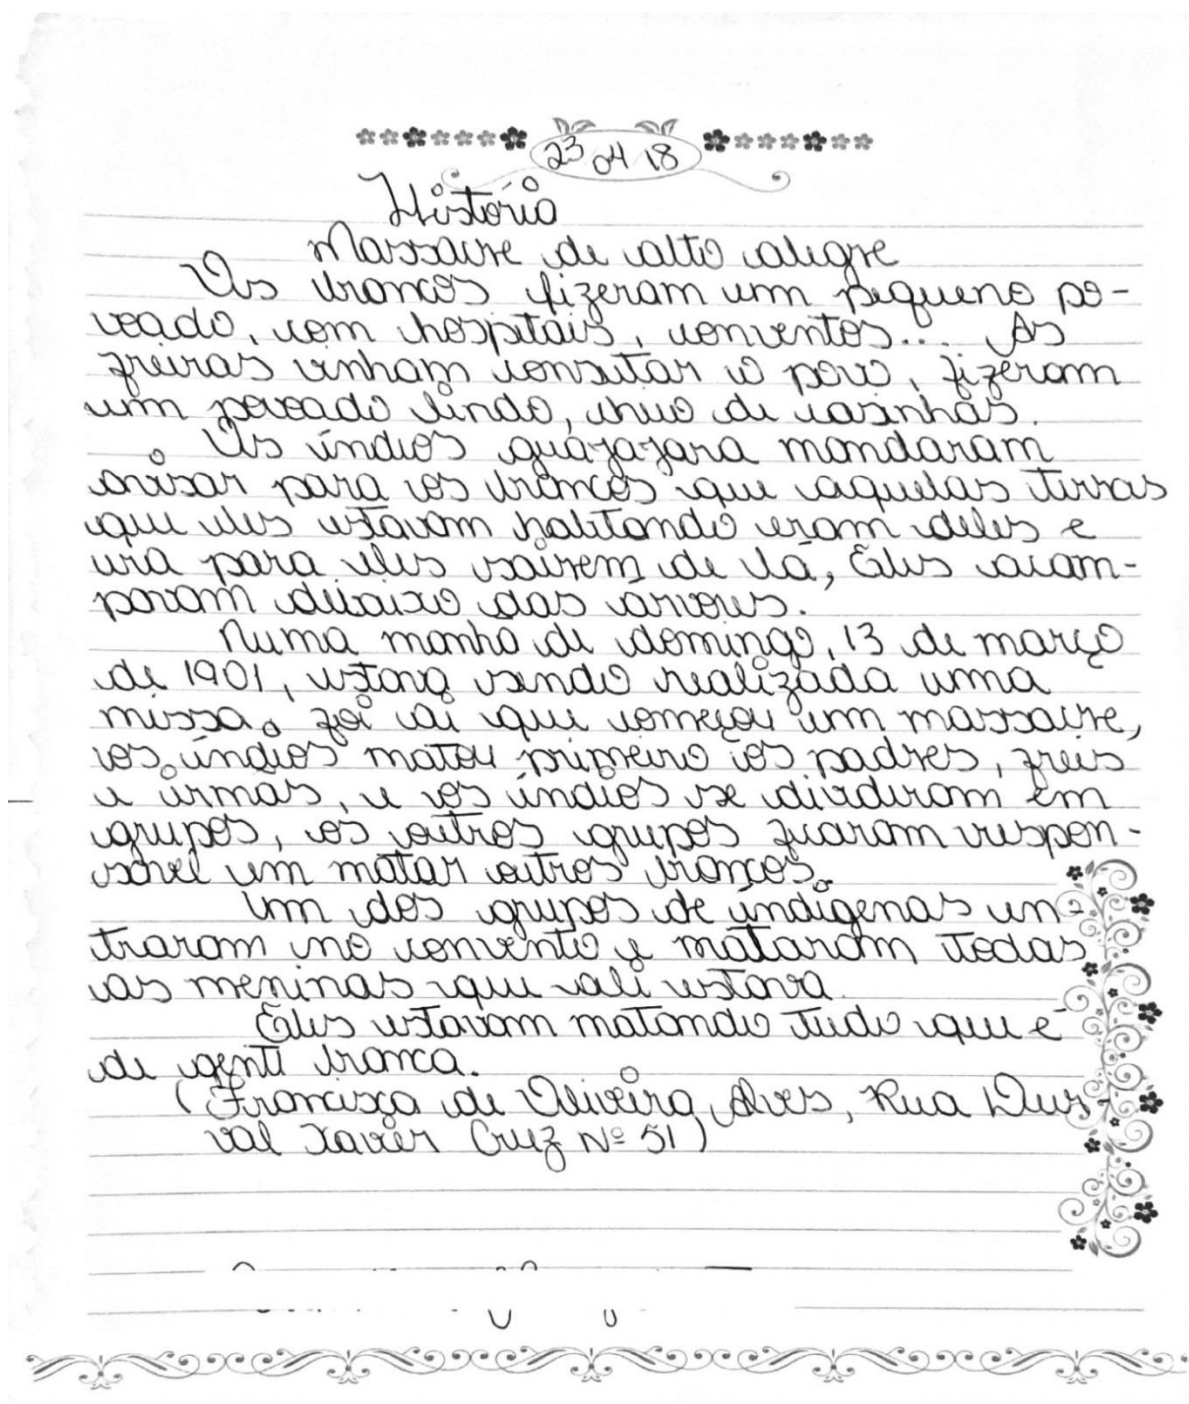 23 04 18
História
Massacre de alto alegre
Os brancos fizeram um pequeno po-
voado, com hospitais, conventos... As
freiras vinham consutar o povo, fizeram
um povoado lindo, cheio de casinhas.
Os índios guazazara mandaram
avisar para os brancos que aquelas terras
que eles estavam habitando eram deles e
era para eles sairem de lá, Eles acam-
pavam debaixo das arvores.
Numa manha de domingo, 13 de março
de 1901, estava sendo realizada uma
missa. foi ai que começou um massacre,
os índios matou primeiro os padres, freis
e irmãs, e os índios se dividiram em
grupos, os outros grupos ficaram respon-
savel em matar outros brancos.
Um dos grupos de indígenas en-
traram no convento e mataram todas
as meninas que ali estava.
Eles estavam matando tudo que é
de gente branca.
(Francisca de Oliveira Alves, Rua Deus
val Xavier Cruz Nº 51)